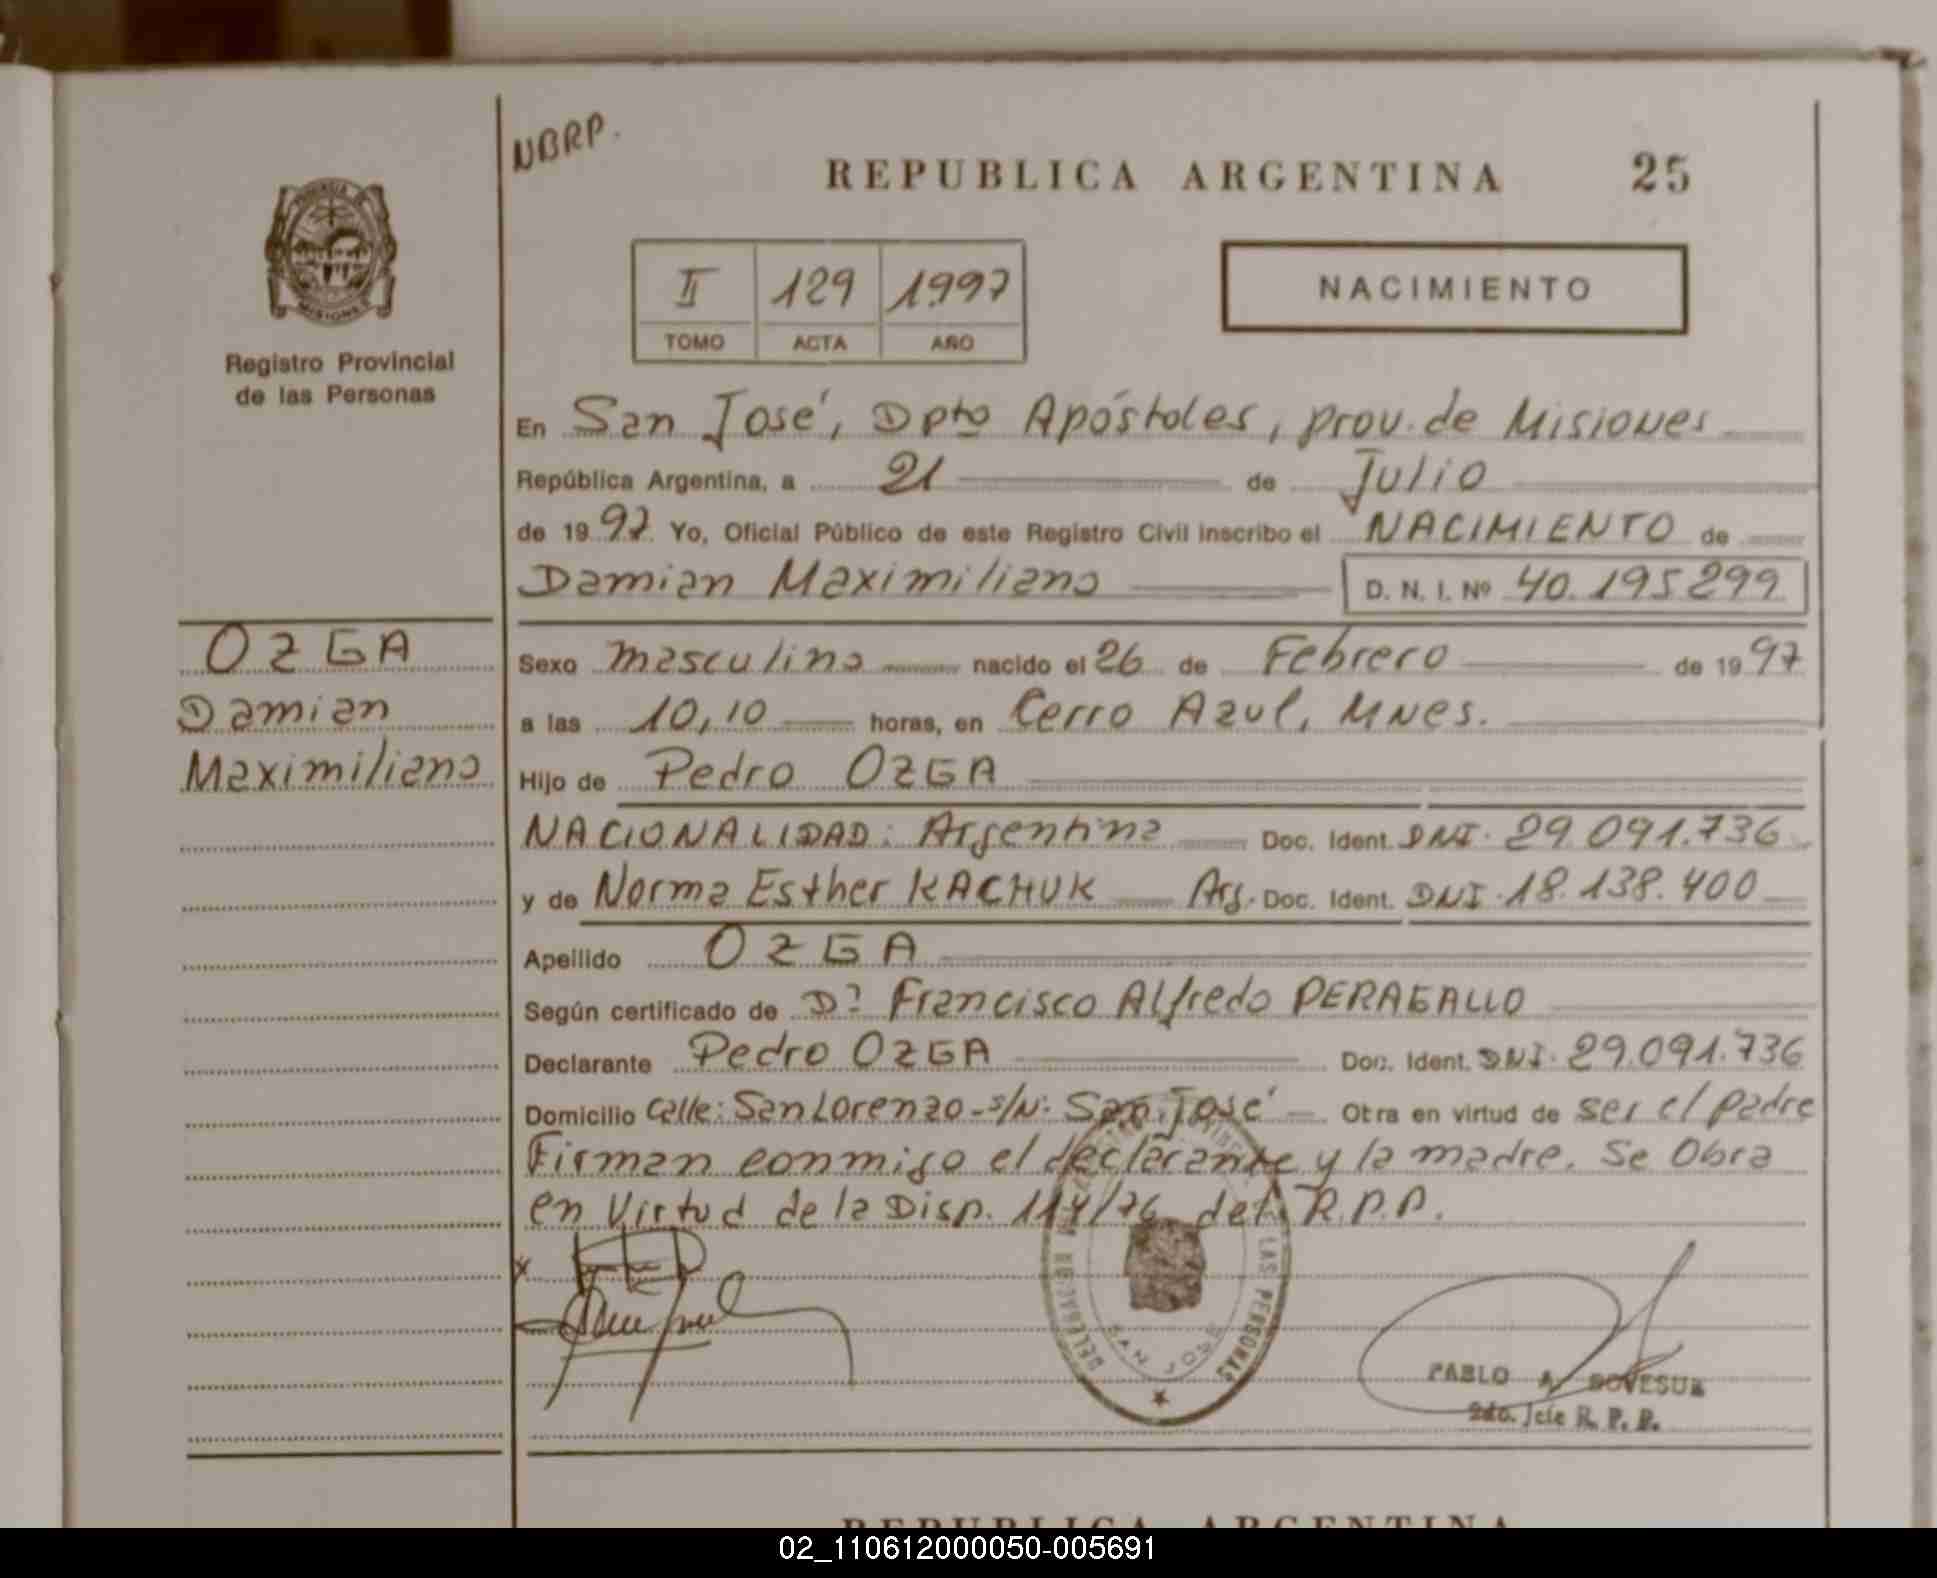 NBRP.
REPUBLICA ARGENTINA 25
MISIONES
Registro Provincial
de las Personas
II 129 1997
TOMO ACTA AÑO
NACIMIENTO
En San José, Dpto Apóstoles, prov. de Misiones
República Argentina, a 21 de Julio
de 1997 Yo, Oficial Público de este Registro Civil inscribo el NACIMIENTO de
Damian Maximiliano D. N. I. Nº 40.195.299
OZGA
Damian
Maximiliano
Sexo masculino nacido el 26 de Febrero de 1997
a las 10,10 horas, en Cerro Azul, Mnes.
Hijo de Pedro OZGA
NACIONALIDAD: Argentina Doc. Ident. DNI. 29.091.736
y de Norma Esther KACHUK Arg. Doc. Ident. DNI. 18.138.400
Apellido OZGA
Según certificado de Dº Francisco Alfredo PERAGALLO
Declarante Pedro OZGA Doc. Ident. DNI. 29.091.736
Domicilio Calle: San Lorenzo - s/N: San José Otra en virtud de ser el padre
Firman conmigo el declarante y la madre. Se Obra
en Virtud de la Disp. 114/76 del R.P.P.
LAS PERSONAS
SAN JOSE
PABLO A.
2do. Jefe R. P. P.
REPUBLICA ARGENTINA
02_110612000050-005691